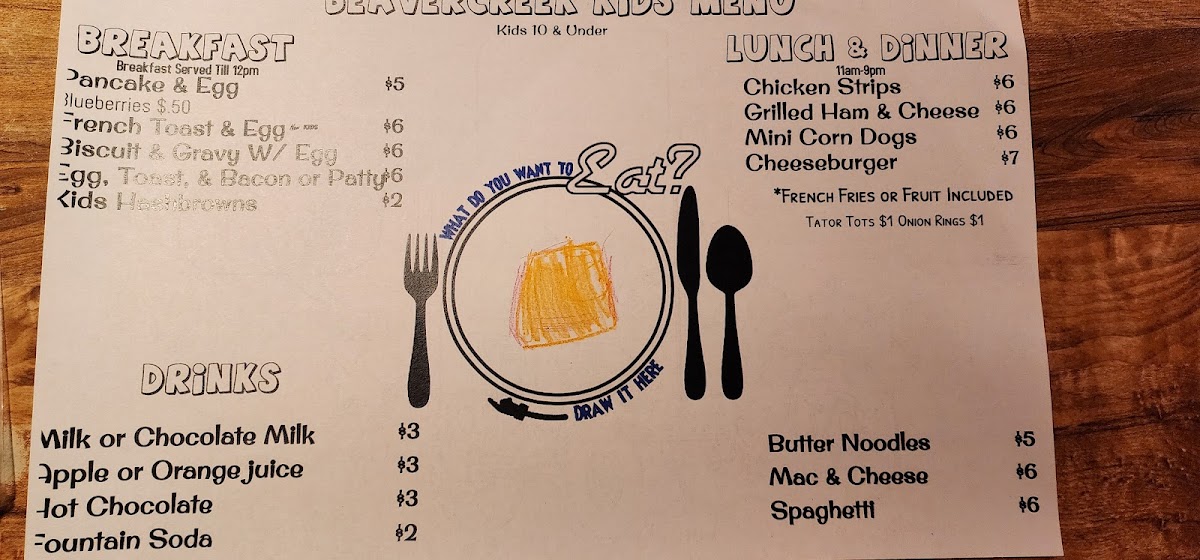 BEAVERCREEK KIDS MENU
Kids 10 & Under
BREAKFAST
Breakfast Served Till 12pm
Pancake & Egg $5
Blueberries $.50
French Toast & Egg $6
Biscuit & Gravy W/ Egg $6
Egg, Toast, & Bacon or Patty $6
Kids Hashbrowns $2
LUNCH & DINNER
11am-9pm
Chicken Strips $6
Grilled Ham & Cheese $6
Mini Corn Dogs $6
Cheeseburger $7
*FRENCH FRIES OR FRUIT INCLUDED
TATOR TOTS $1 ONION RINGS $1
WHAT DO YOU WANT TO
Eat?
DRAW IT HERE
DRINKS
Milk or Chocolate Milk $3
Apple or Orange juice $3
Hot Chocolate $3
Fountain Soda $2
Butter Noodles $5
Mac & Cheese $6
Spaghetti $6